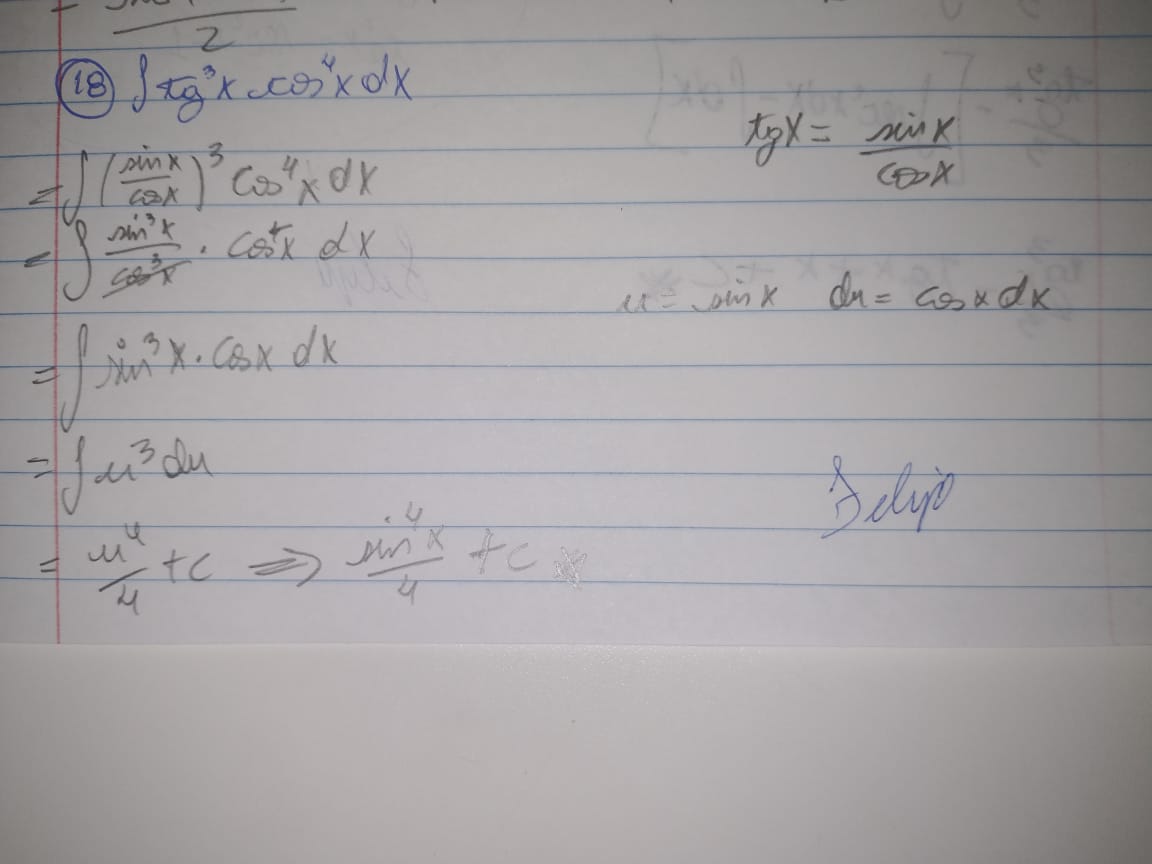 2
18 ∫ tg³x cos⁴x dx
tgx = sinx/cosx
= ∫ (sinx/cosx)³ cos⁴x dx
= ∫ sin³x/cos³x · cos⁴x dx
u = sinx du = cosx dx
= ∫ sin³x · cosx dx
= ∫ u³ du
= u⁴/4 + c ⇒ sin⁴x/4 + c